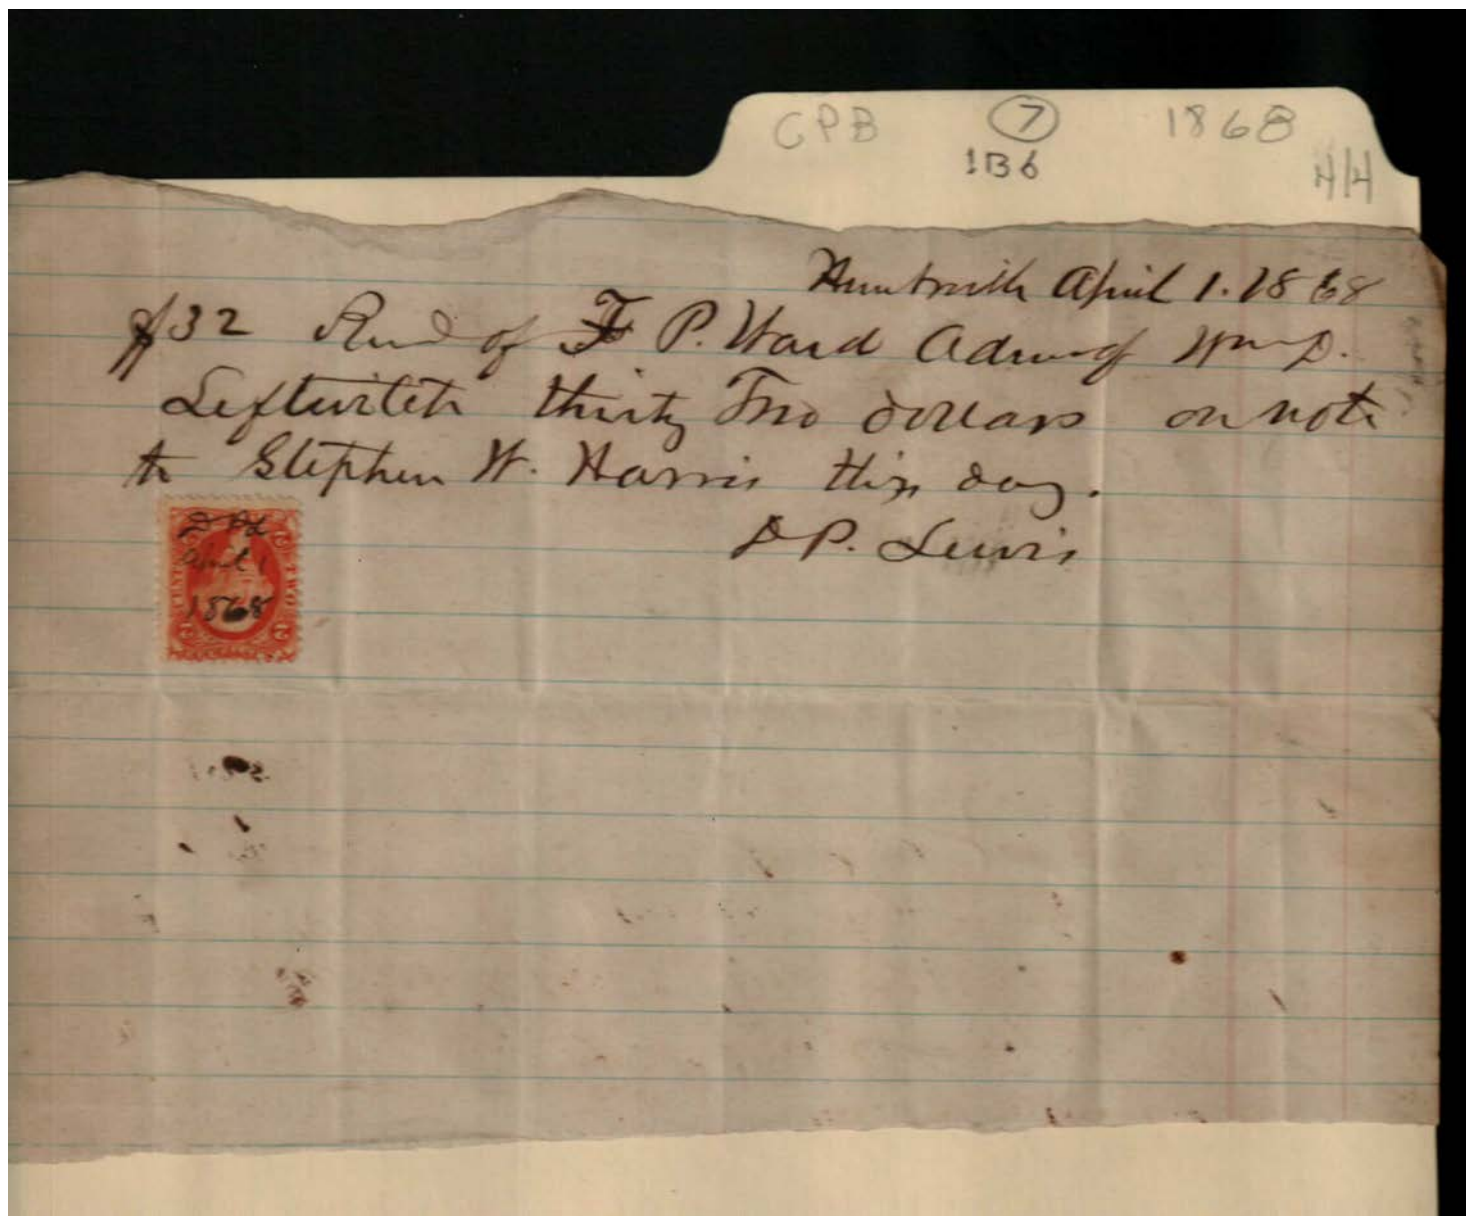 CPB 7 1868
1B6
H/H
Huntsville April 1. 1868
$32 Recd of T P. Ward Admr of Wm D.
Leftwitch thirty Two dollars on note
to Stephen W. Harris this day.
D P. Lewis
D P L
April 1
1868
2 2
CENTS TWO
2 2